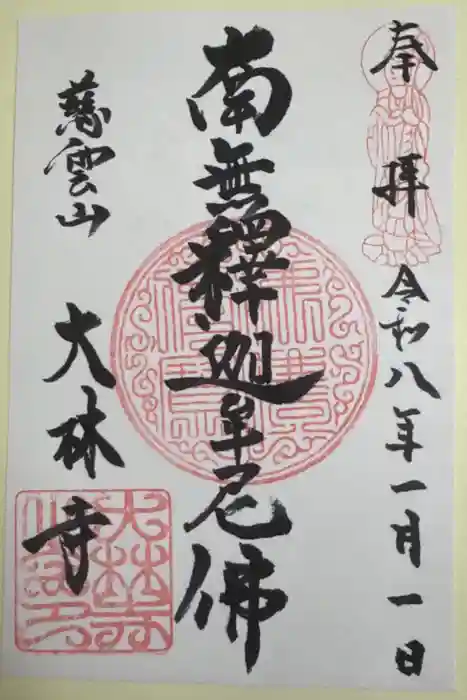 奉拝
令和八年一月一日
南無釋迦牟尼佛
慈雲山
大林寺